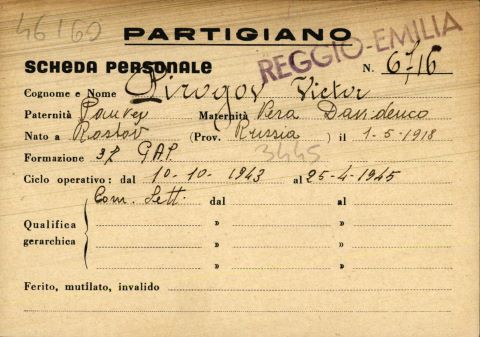 46160
PARTIGIANO
REGGIO-EMILIA
SCHEDA PERSONALE N. 6716
Cognome e Nome Pirogov Victor
Paternità Maternità Vera Davidenco
Nato a Rostov (Prov. Russia) il 1-5-1918
3445
Formazione 37 G.A.P.
Ciclo operativo: dal 10-10-1943 al 25-4-1945
Qualifica gerarchica
Com. Sett. dal al
» »
» »
» »
Ferito, mutilato, invalido